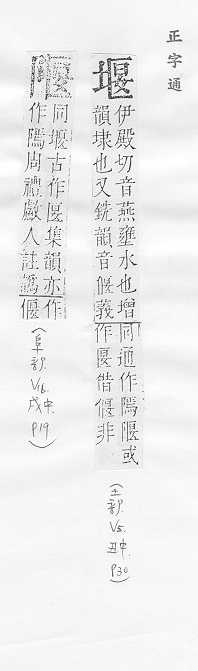 正字通
堰
伊殿切音燕壅水也增
韻埭也又銑韻音偃義
同通作隁隁或
作匽偕偃非
(土部.
V5.
丑中.
P30)
隁
同堰古作匽集韻亦作
作隁周禮䱷人註
偃
(阜部.
V16.
戌中.
P19)